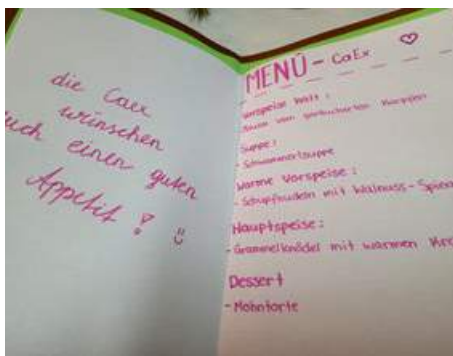 die Caex
wünschen
euch einen guten
Appetit! :)
MENÜ - CaEx ♡
Vorspeise kalt:
von geräucherten Karpfen
Suppe:
- Schwammerlsuppe
Warme Vorspeise:
- Schupfnudeln mit Walnuss-
Hauptspeise:
- Grammelknödel mit warmen
Dessert
- Mohntorte